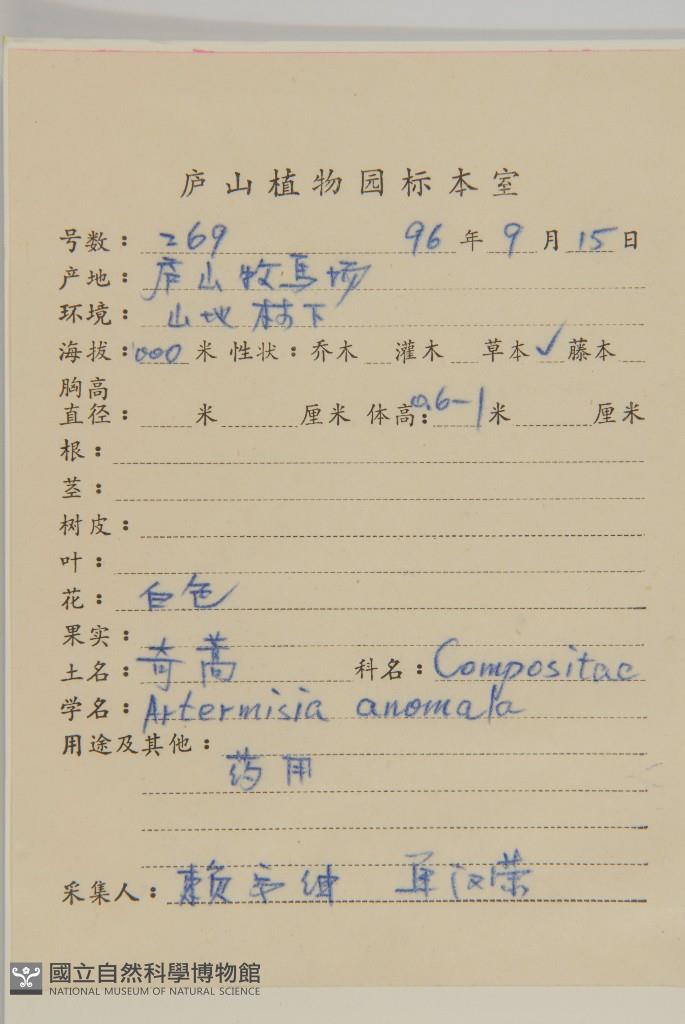 庐山植物园标本室
号数：269 96年9月15日
产地：庐山牧马场
环境：山地林下
海拔：1000米 性状：乔木 灌木 草本✓ 藤本
胸高
直径： 米 厘米 体高：0.6-1米 厘米
根：
茎：
树皮：
叶：
花：白色
果实：
土名：奇蒿 科名：Compositae
学名：Artermisia anomala
用途及其他：
药用
采集人：赖 绅 汉荣
國立自然科學博物館
NATIONAL MUSEUM OF NATURAL SCIENCE